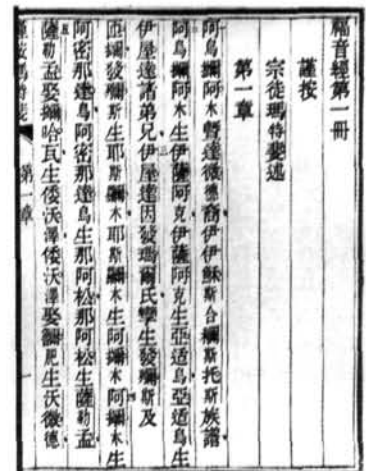 福音經第一冊
謹按
宗徒瑪特斐述
第一章
阿烏拉阿木暨達微德裔伊伊穌斯合爾斯托斯族譜
阿烏拉阿木生伊薩阿克伊薩阿克生亞适烏亞适烏生
伊屋達諸弟兄伊屋達因發瑪爾氏孿生發斯及
發斯生耶斯木耶斯木生阿木阿木生
阿密那達烏阿密那達烏生那阿松那阿松生薩勒孟
薩勒孟娶哈瓦生倭沃澤倭沃澤娶肥生沃微德
第一章
一